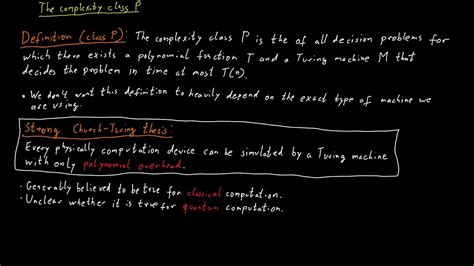 The complexity class P
Definition (class P): The complexity class P is the of all decision problems for
which there exists a polynomial function T and a Turing machine M that
decides the problem in time at most T(n).
• We don't want this definition to heavily depend on the exact type of machine we
are using.
Strong Church-Turing thesis:
Every physically computation device can be simulated by a Turing machine
with only polynomial overhead.
• Generally believed to be true for classical computation.
• Unclear whether it is true for quantum computation.